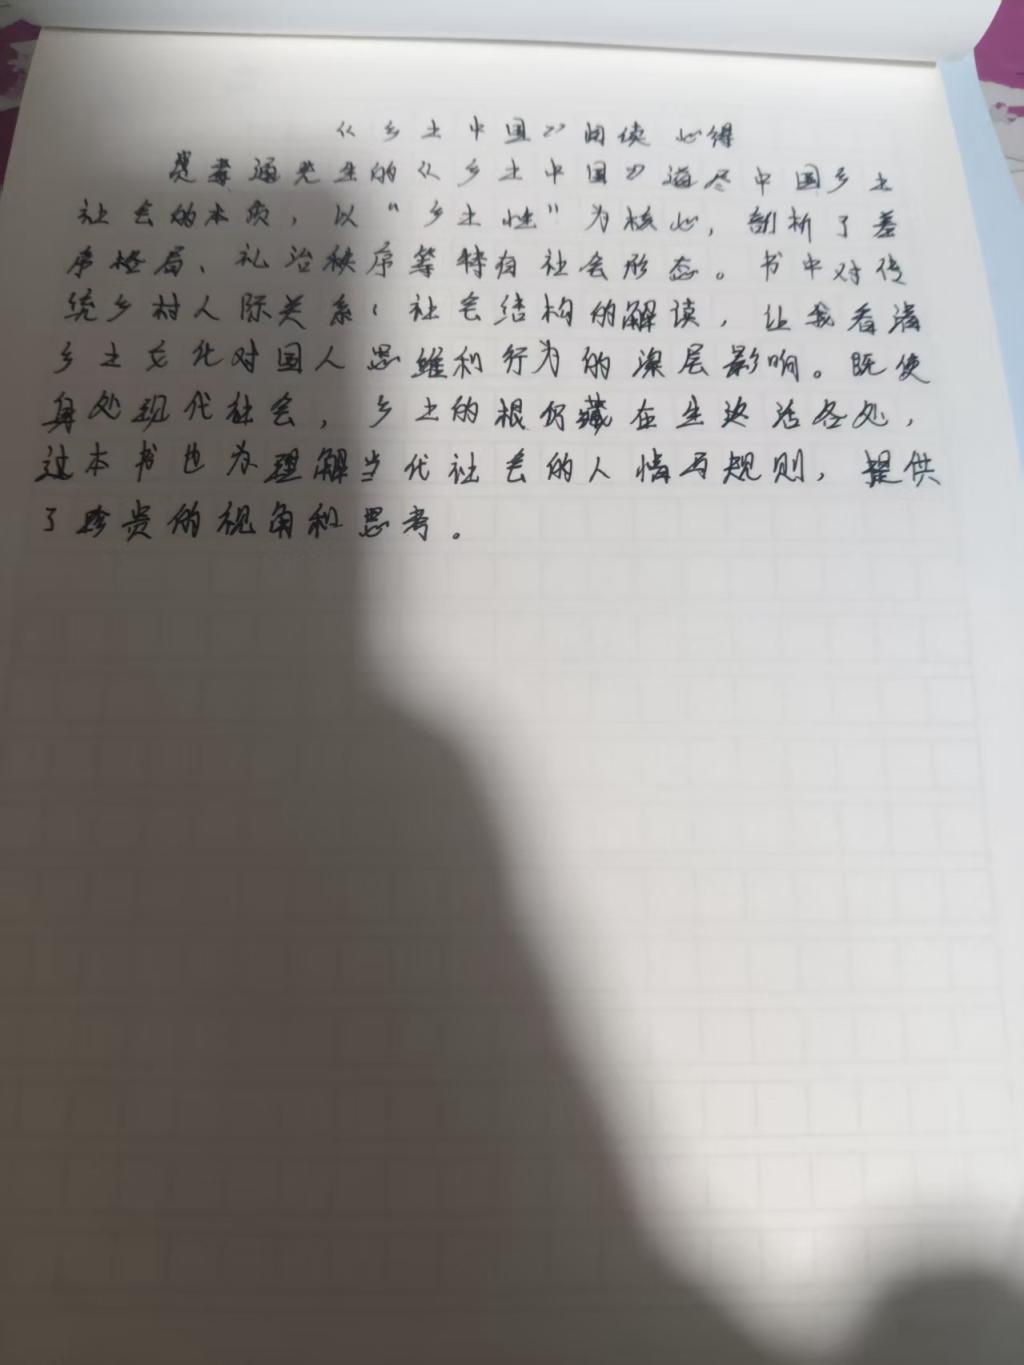 《乡土中国》阅读心得
费孝通先生的《乡土中国》道尽中国乡土
社会的本质，以“乡土性”为核心，剖析了差
序格局、礼治秩序等特有社会形态。书中对传
统乡村人际关系，社会结构的解读，让我看清
乡土文化对国人思维和行为的深层影响。既使
身处现代社会，乡土的根仍藏在生活各处，
这本书也为理解当代社会的人情与规则，提供
了珍贵的视角和思考。